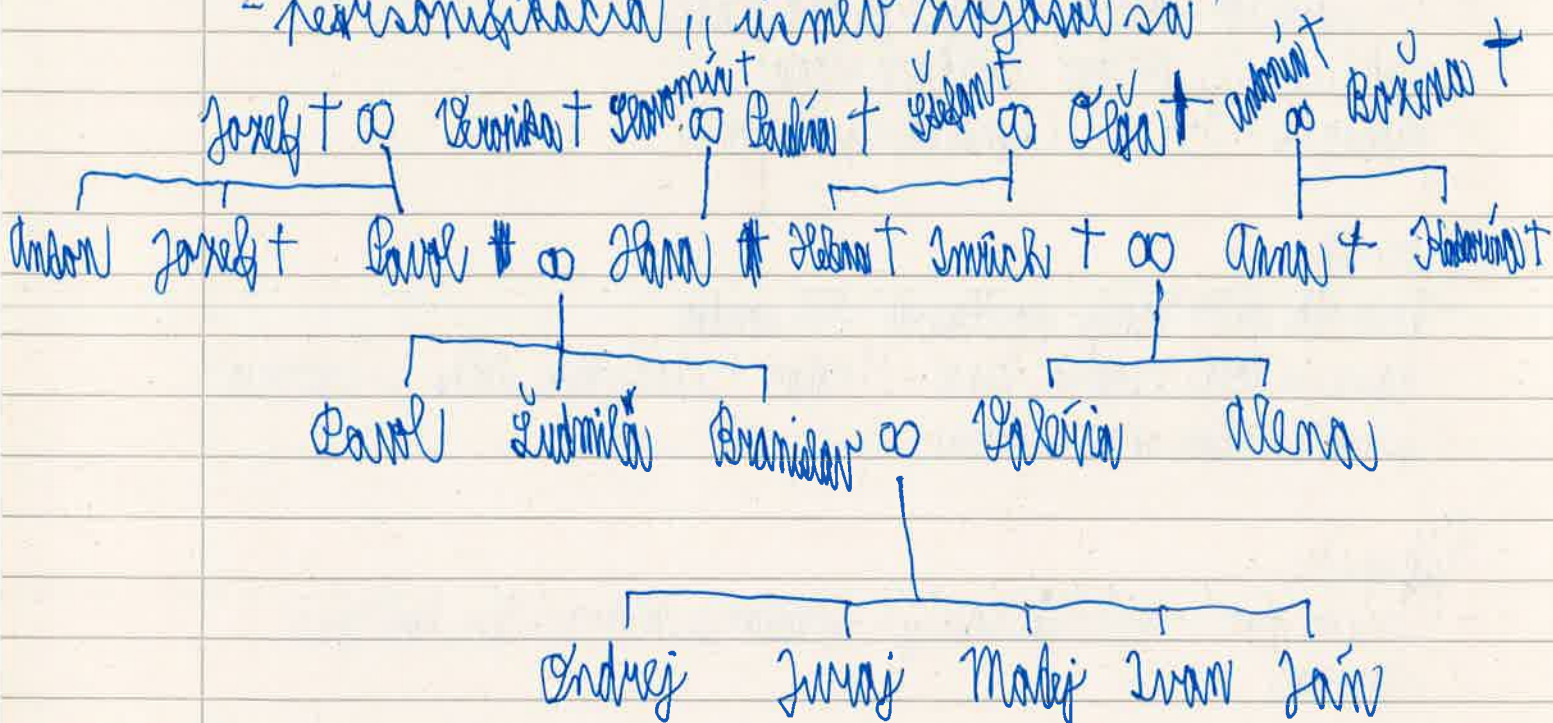 - personifikácia ,, úsmev
Jozef † ∞ Veronika † Slavomír † ∞ Paulína † Štefan † ∞ Oľga † Antonín † ∞ Božena †
Anton Jozef † Pavol ∞ Hana Helena † Imrich † ∞ Anna † Katarína †
Pavol Ľudmila Branislav ∞ Valéria Alena
Ondrej Juraj Matej Ivan Ján